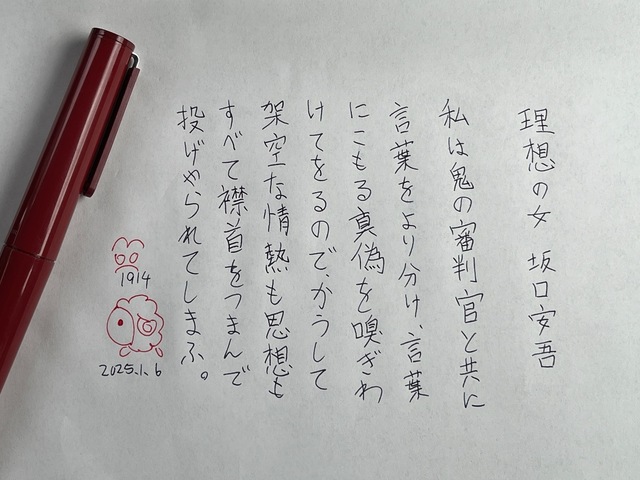 理想の女 坂口安吾
私は鬼の審判官と共に
言葉をより分け、言葉
にこもる真偽を嗅ぎわ
けてをるので、かうして
架空な情熱も思想も
すべて襟首をつまんで
投げやられてしまふ。
1914
2025.1.6